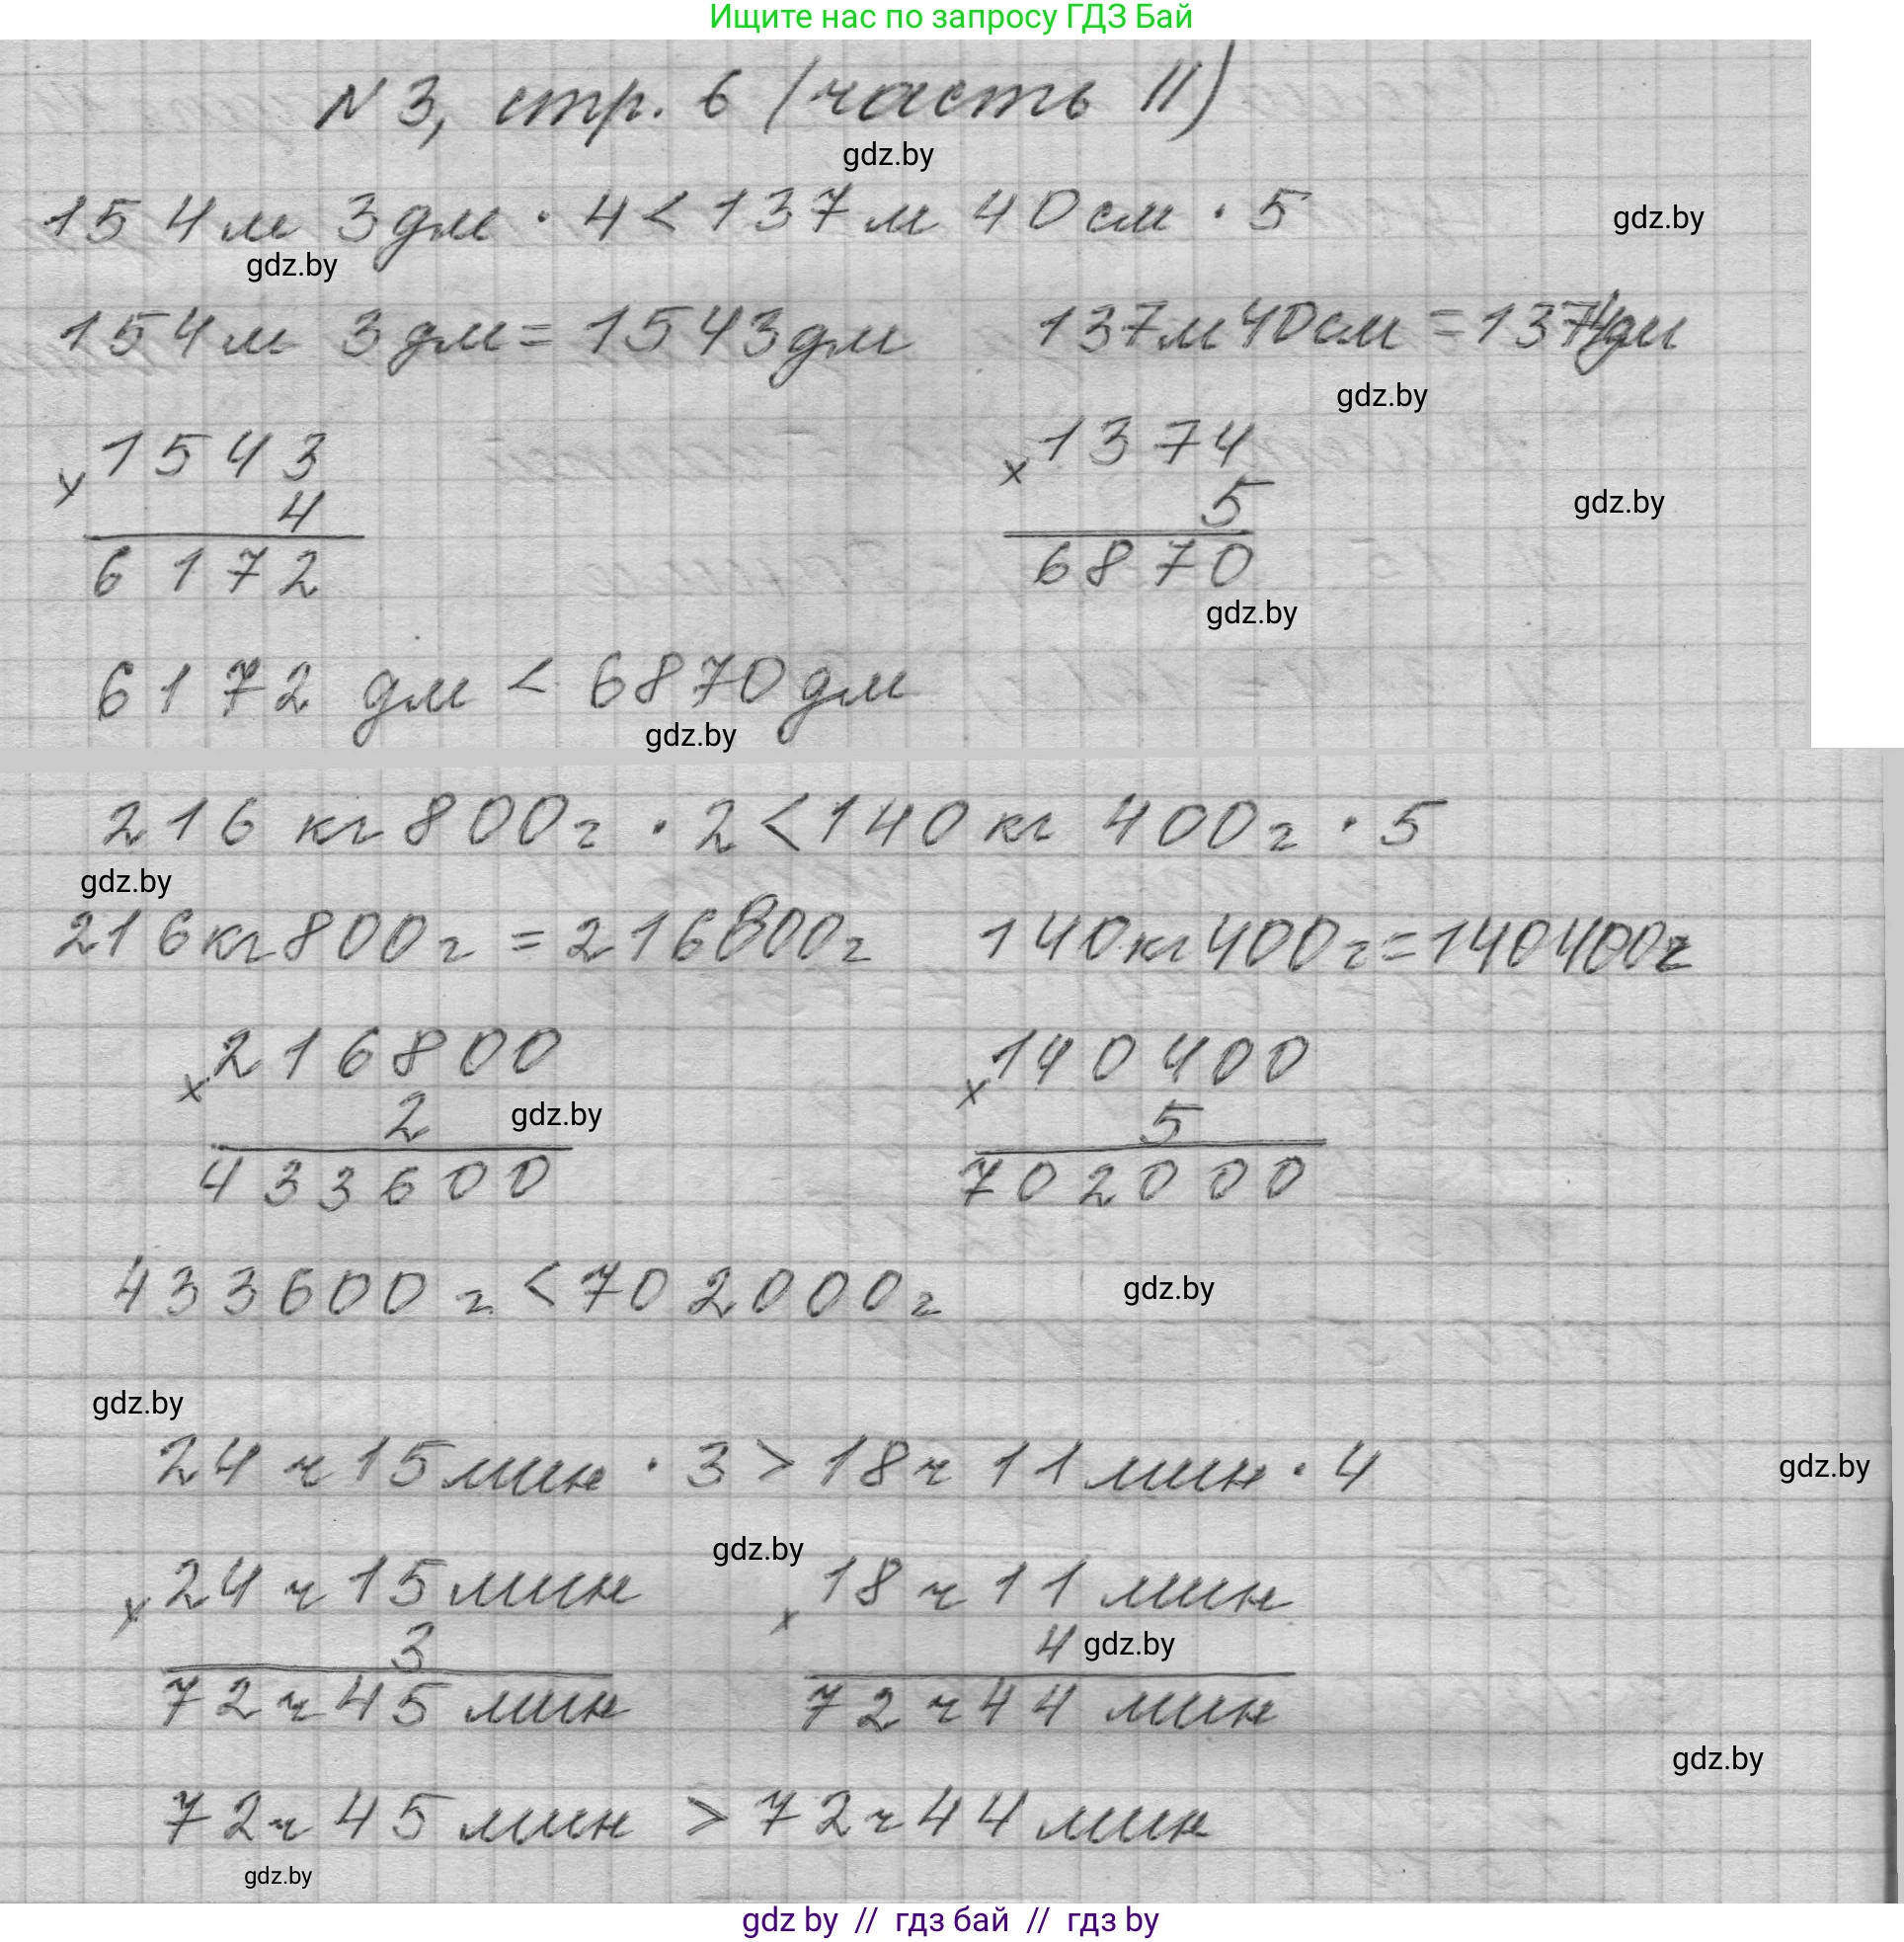 Ищите нас по запросу ГДЗ Бай
N 3, стр. 6 (часть II)
gdz.by
154 м 3 дм · 4 < 137 м 40 см · 5
gdz.by
gdz.by
154 м 3 дм = 1543 дм 137 м 40 см = 1374 дм
gdz.by
× 1543 × 1374
4 5
gdz.by
6172 6870
gdz.by
6172 дм < 6870 дм
gdz.by
216 кг 800 г · 2 < 140 кг 400 г · 5
gdz.by
216 кг 800 г = 216800 г 140 кг 400 г = 140400 г
× 216800 × 140400
2 gdz.by 5
433600 702000
433600 г < 702000 г gdz.by
gdz.by
24 ч 15 мин · 3 > 18 ч 11 мин · 4 gdz.by
gdz.by
× 24 ч 15 мин × 18 ч 11 мин
3 4 gdz.by
72 ч 45 мин 72 ч 44 мин
gdz.by
72 ч 45 мин > 72 ч 44 мин
gdz.by
gdz by // гдз бай // гдз by